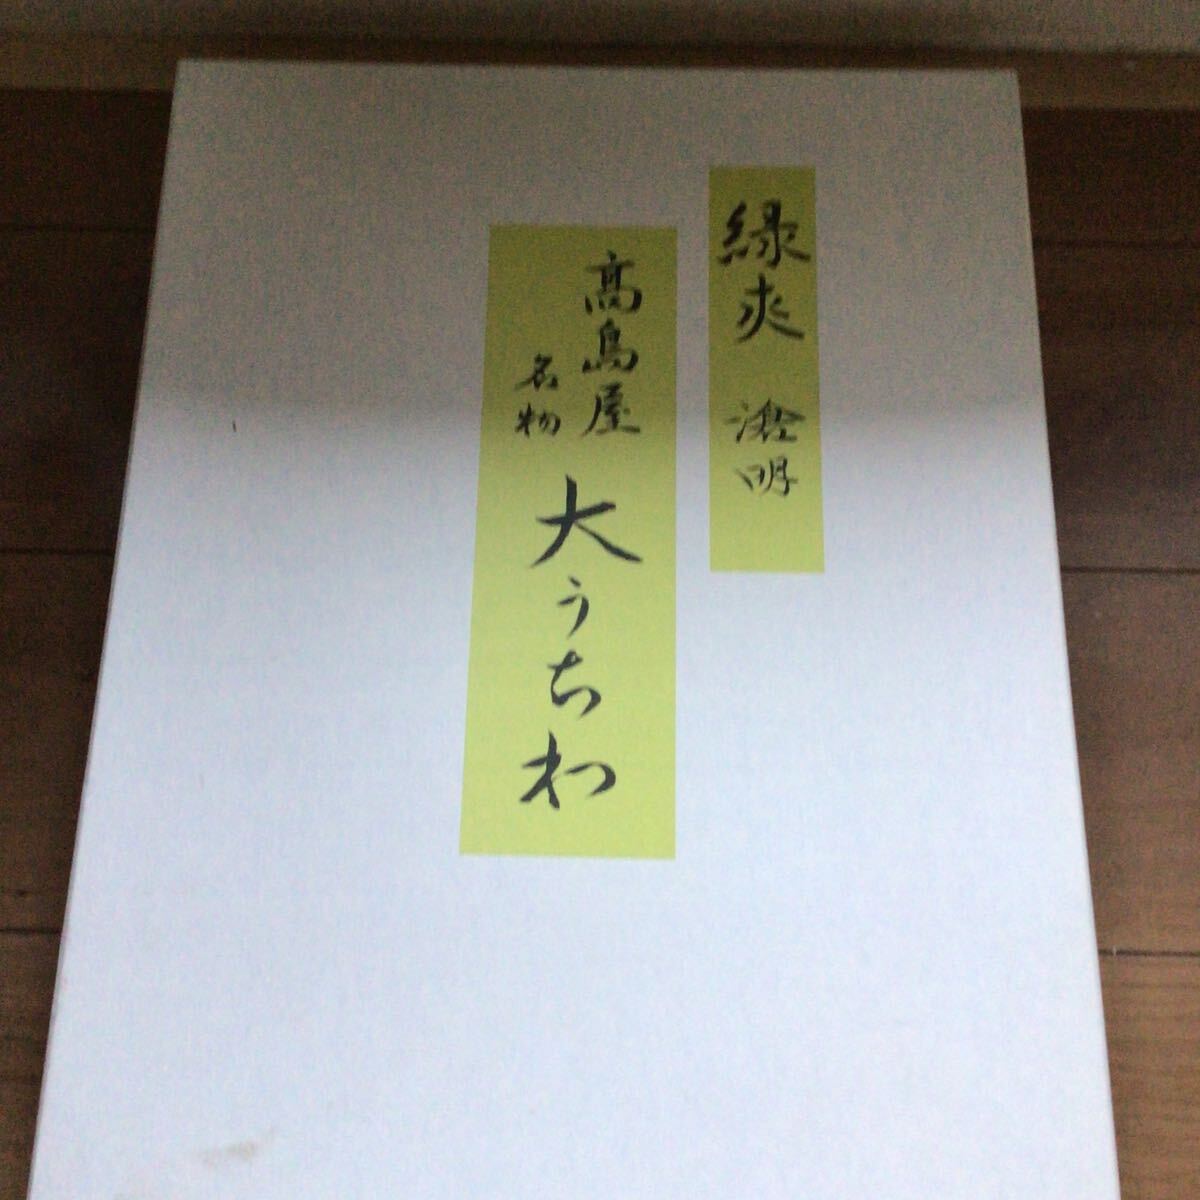 緑爽 滄明
高島屋
名物
大うちわ